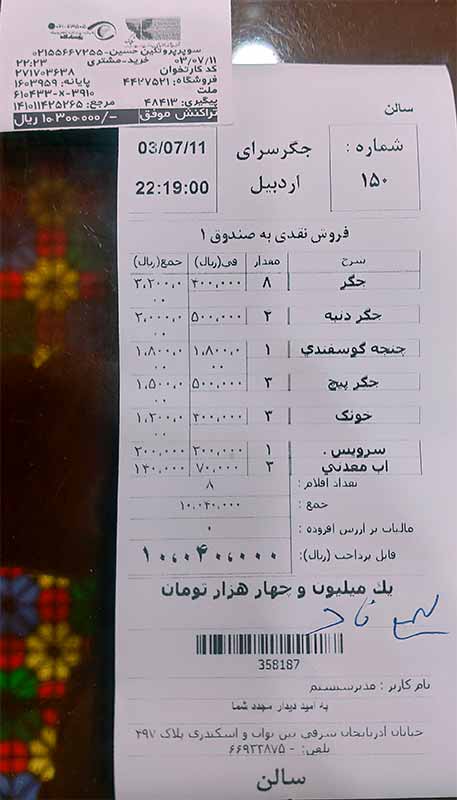 سوپرپروتئین حسین-۰۲۱۵۵۶۶۷۲۵۵
۰۳/۰۷/۱۱ خرید-مشتری ۲۲:۲۳
کد کارتخوان ۲۷۱۷۰۳۶۳۸
فروشگاه: ۴۴۲۷۵۲۱ پایانه: ۱۶۰۳۹۵۹
ملت ۶۱۰۴۳۳-X-۳۹۱۰
پیگیری: ۴۸۴۱۳ مرجع: ۱۴۱۰۱۱۴۲۵۲۶۵
تراکنش موفق ۱۰٬۳۰۰٬۰۰۰/- ریال
سالن
شماره : ۱۵۰
جگرسرای اردبیل
03/07/11
22:19:00
فروش نقدی به صندوق ۱
شرح مقدار فی(ریال) جمع(ریال)
جگر ۸ ۴۰۰,۰۰۰ ۳,۲۰۰,۰۰۰
جگر دنبه ۲ ۵۰۰,۰۰۰ ۲,۰۰۰,۰۰
چنجه گوسفندي ۱ ۱,۸۰۰,۰۰۰ ۱,۸۰۰,۰۰۰
جگر پیچ ۳ ۵۰۰,۰۰۰ ۱,۵۰۰,۰۰۰
خوئک ۳ ۴۰۰,۰۰۰ ۱,۲۰۰,۰۰۰
سرویس . ۱ ۲۰۰,۰۰۰ ۲۰۰,۰۰۰
اب معدني ۲ ۷۰,۰۰۰ ۱۴۰,۰۰۰
تعداد اقلام : ۸
جمع : ۱۰,۰۴۰,۰۰۰
مالیات بر ارزش افزوده : ۰
قابل پرداخت (ریال): ۱۰,۰۴۰,۰۰۰
یك میلیون و چهار هزار تومان
358187
نام کاربر : مدیرسیستم
به امید دیدار مجدد شما
خیابان آذربایجان شرقی بین نواب و اسکندری پلاک ۲۹۷
تلفن: - ۶۶۹۲۲۸۷۵
سالن